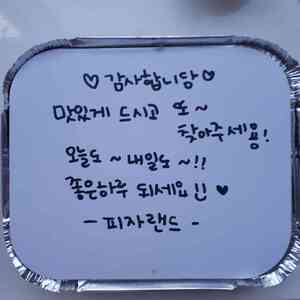 ♡감사합니당♡
맛있게 드시고 또~
찾아주세용!
오늘도~내일도~!!
좋은하루 되세요!! ♥
- 피자랜드 -